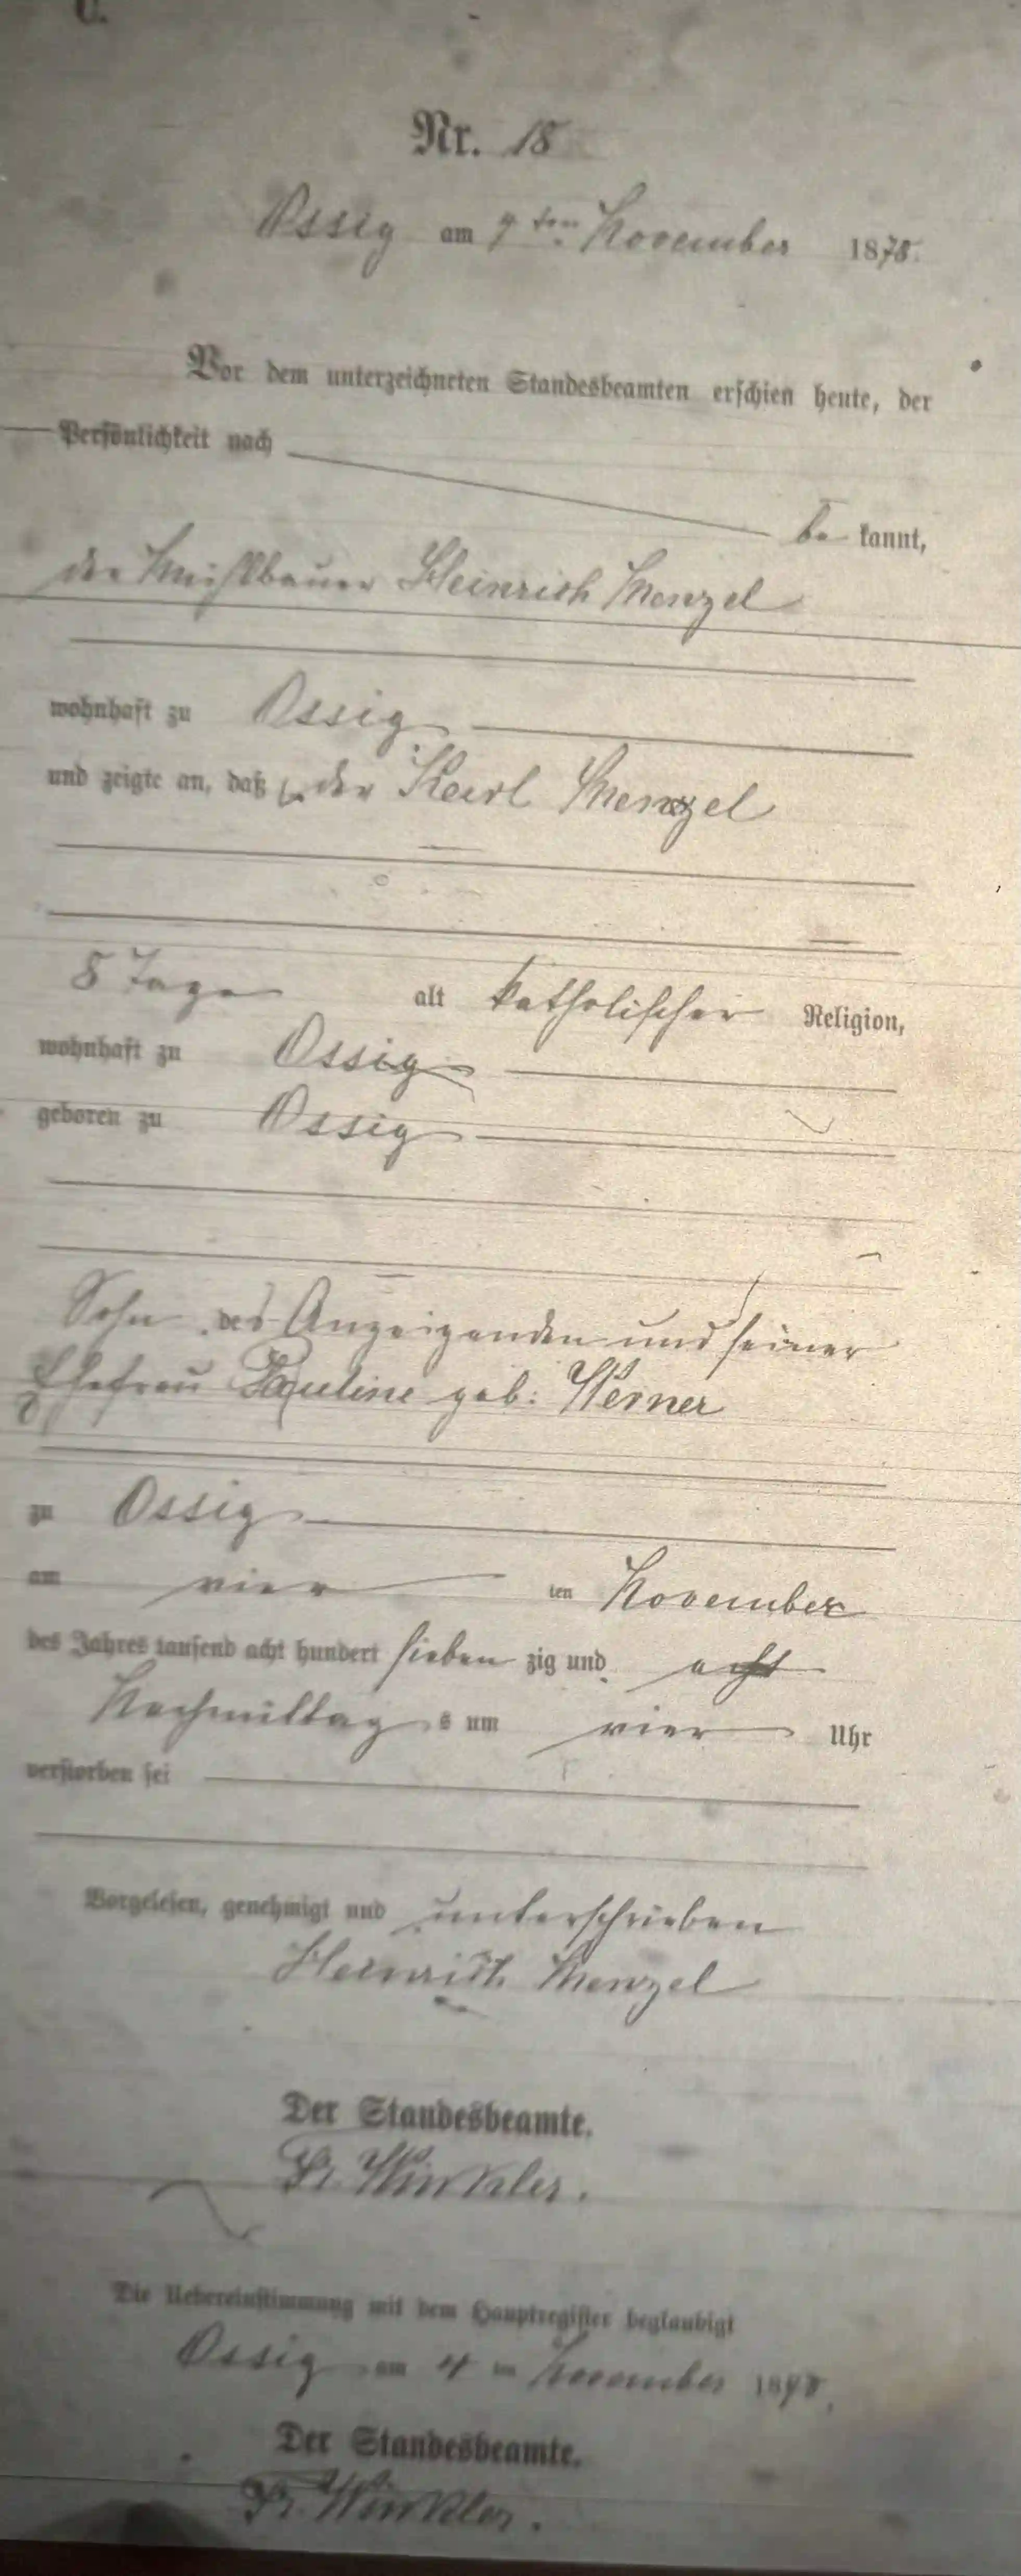 C.
Nr. 18
Ossig am 7ten November 1878.
Vor dem unterzeichneten Standesbeamten erschien heute, der
Persönlichkeit nach
be kannt,
der Mühlbauer Heinrich Menzel
wohnhaft zu Ossig
und zeigte an, daß der Karl Menzel
8 Tage alt katholischer Religion,
wohnhaft zu Ossig
geboren zu Ossig
Sohn des Anzeigenden und seiner
Ehefrau Pauline geb: Werner
zu Ossig
am vier ten November
des Jahres tausend acht hundert sieben zig und acht
Nachmittag s um vier Uhr
verstorben sei
Vorgelesen, genehmigt und unterschrieben
Heinrich Menzel
Der Standesbeamte.
Winkler.
Die Uebereinstimmung mit dem Hauptregister beglaubigt
Ossig am November 1878.
Der Standesbeamte.
Winkler.